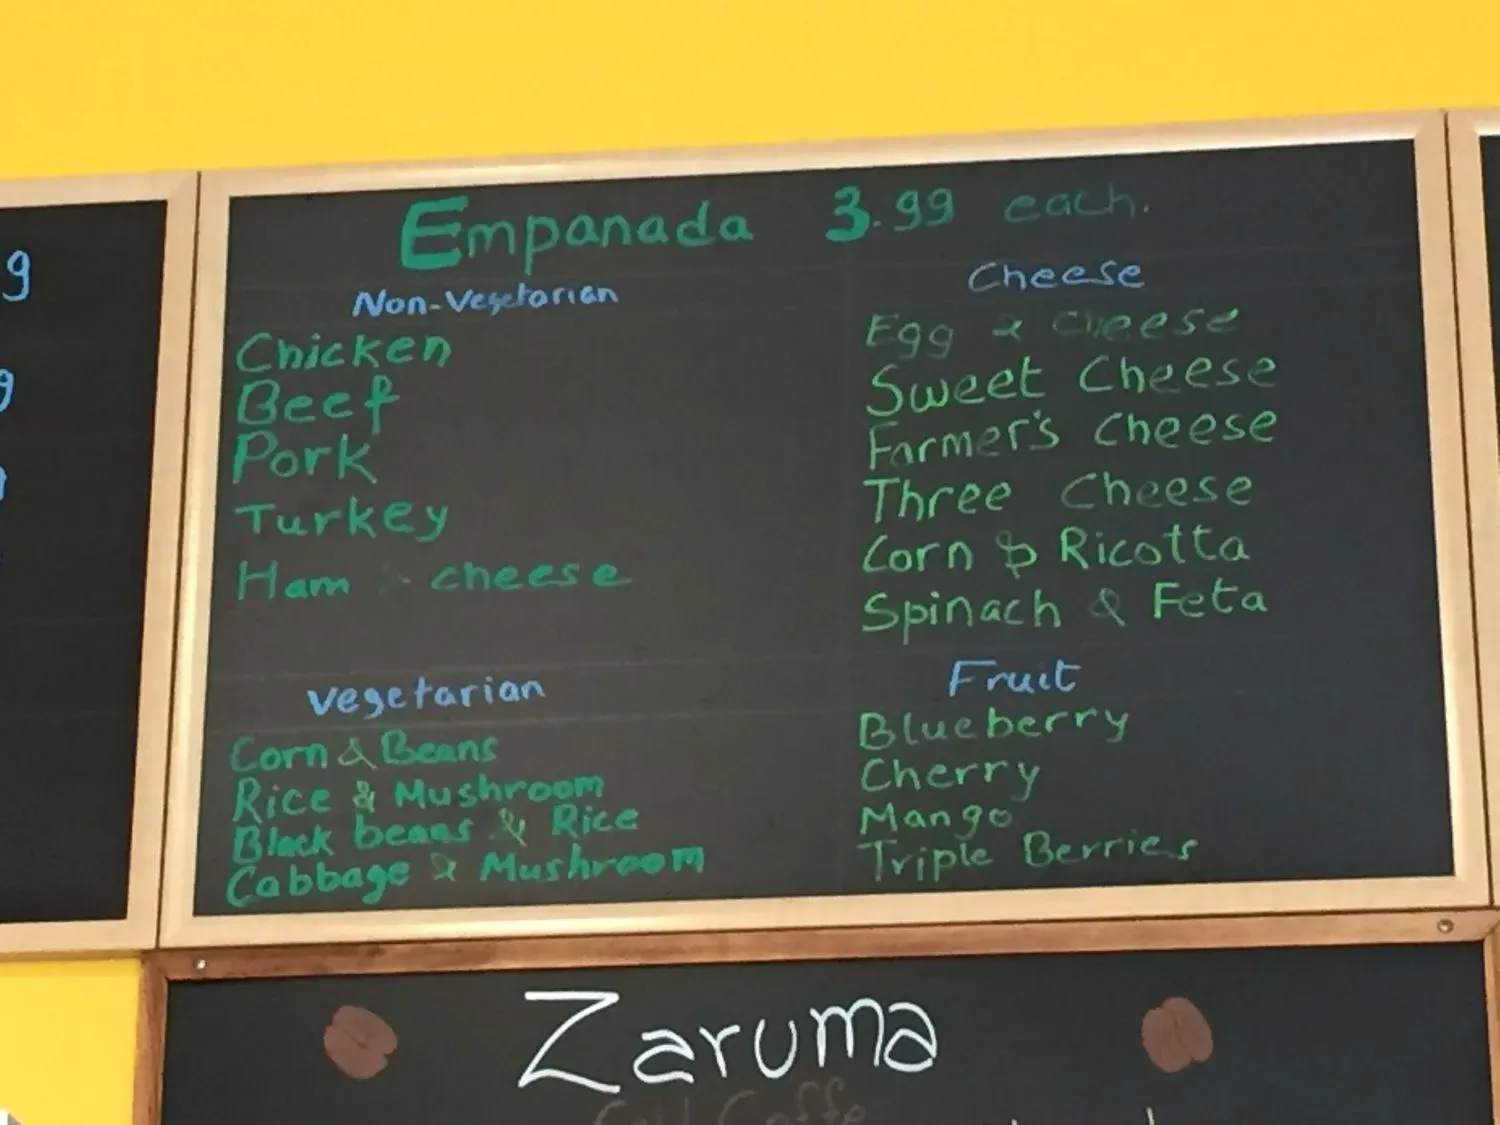 Empanada 3.99 each.
Non-Vegetarian
Chicken
Beef
Pork
Turkey
Ham & cheese
Cheese
Egg & cheese
Sweet Cheese
Farmer's cheese
Three Cheese
Corn & Ricotta
Spinach & Feta
Vegetarian
Corn & Beans
Rice & Mushroom
Black beans & Rice
Cabbage & Mushroom
Fruit
Blueberry
Cherry
Mango
Triple Berries
Zaruma